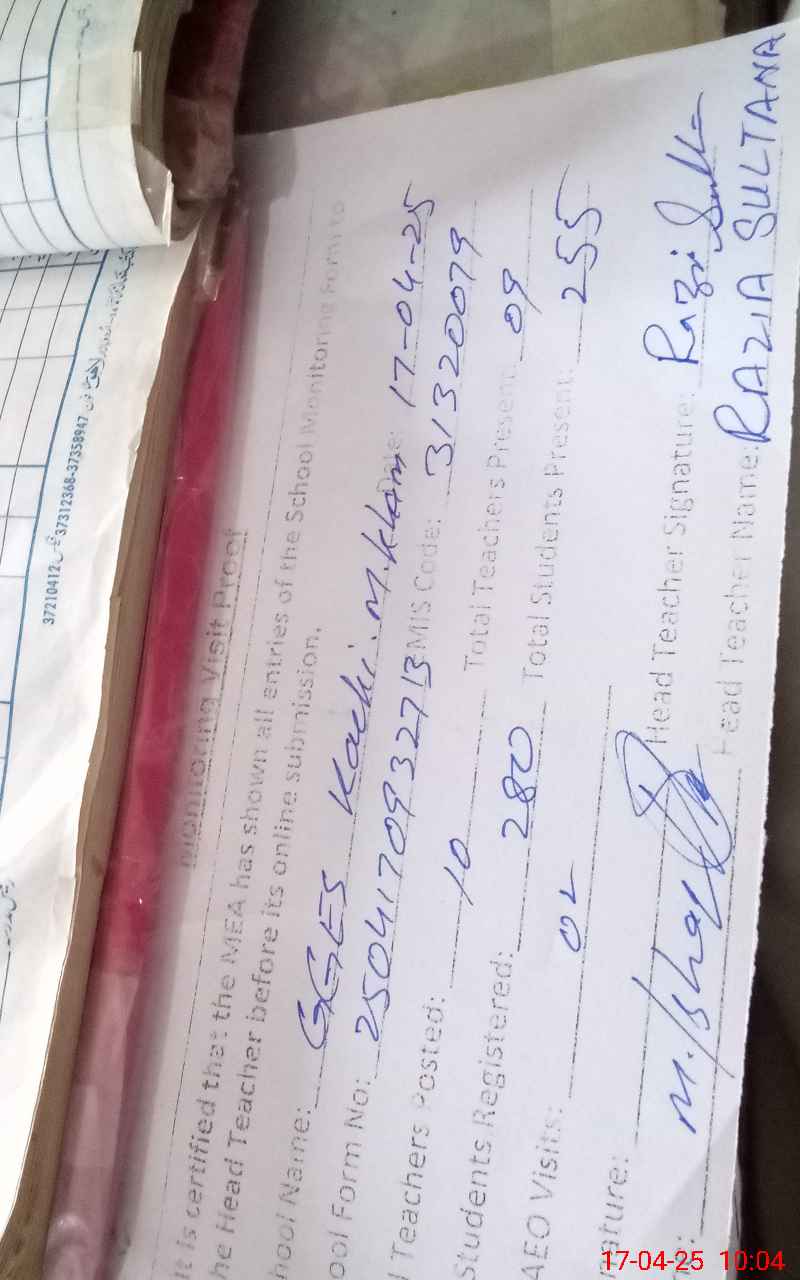 37210412 37312368-37358947
Monitoring Visit Proof
It is certified that the MEA has shown all entries of the School Monitoring Form to
he Head Teacher before its online submission.
hool Name: GGES Kachi. M. Klam Date: 17-04-25
ool Form No: 2504170932713 EMIS Code: 31320079
l Teachers Posted: 10 Total Teachers Present: 09
Students Registered: 280 Total Students Present: 255
AEO Visits: 02
nature: Head Teacher Signature:
Head Teacher Name: RAZIA SULTANA
17-04-25 10:04